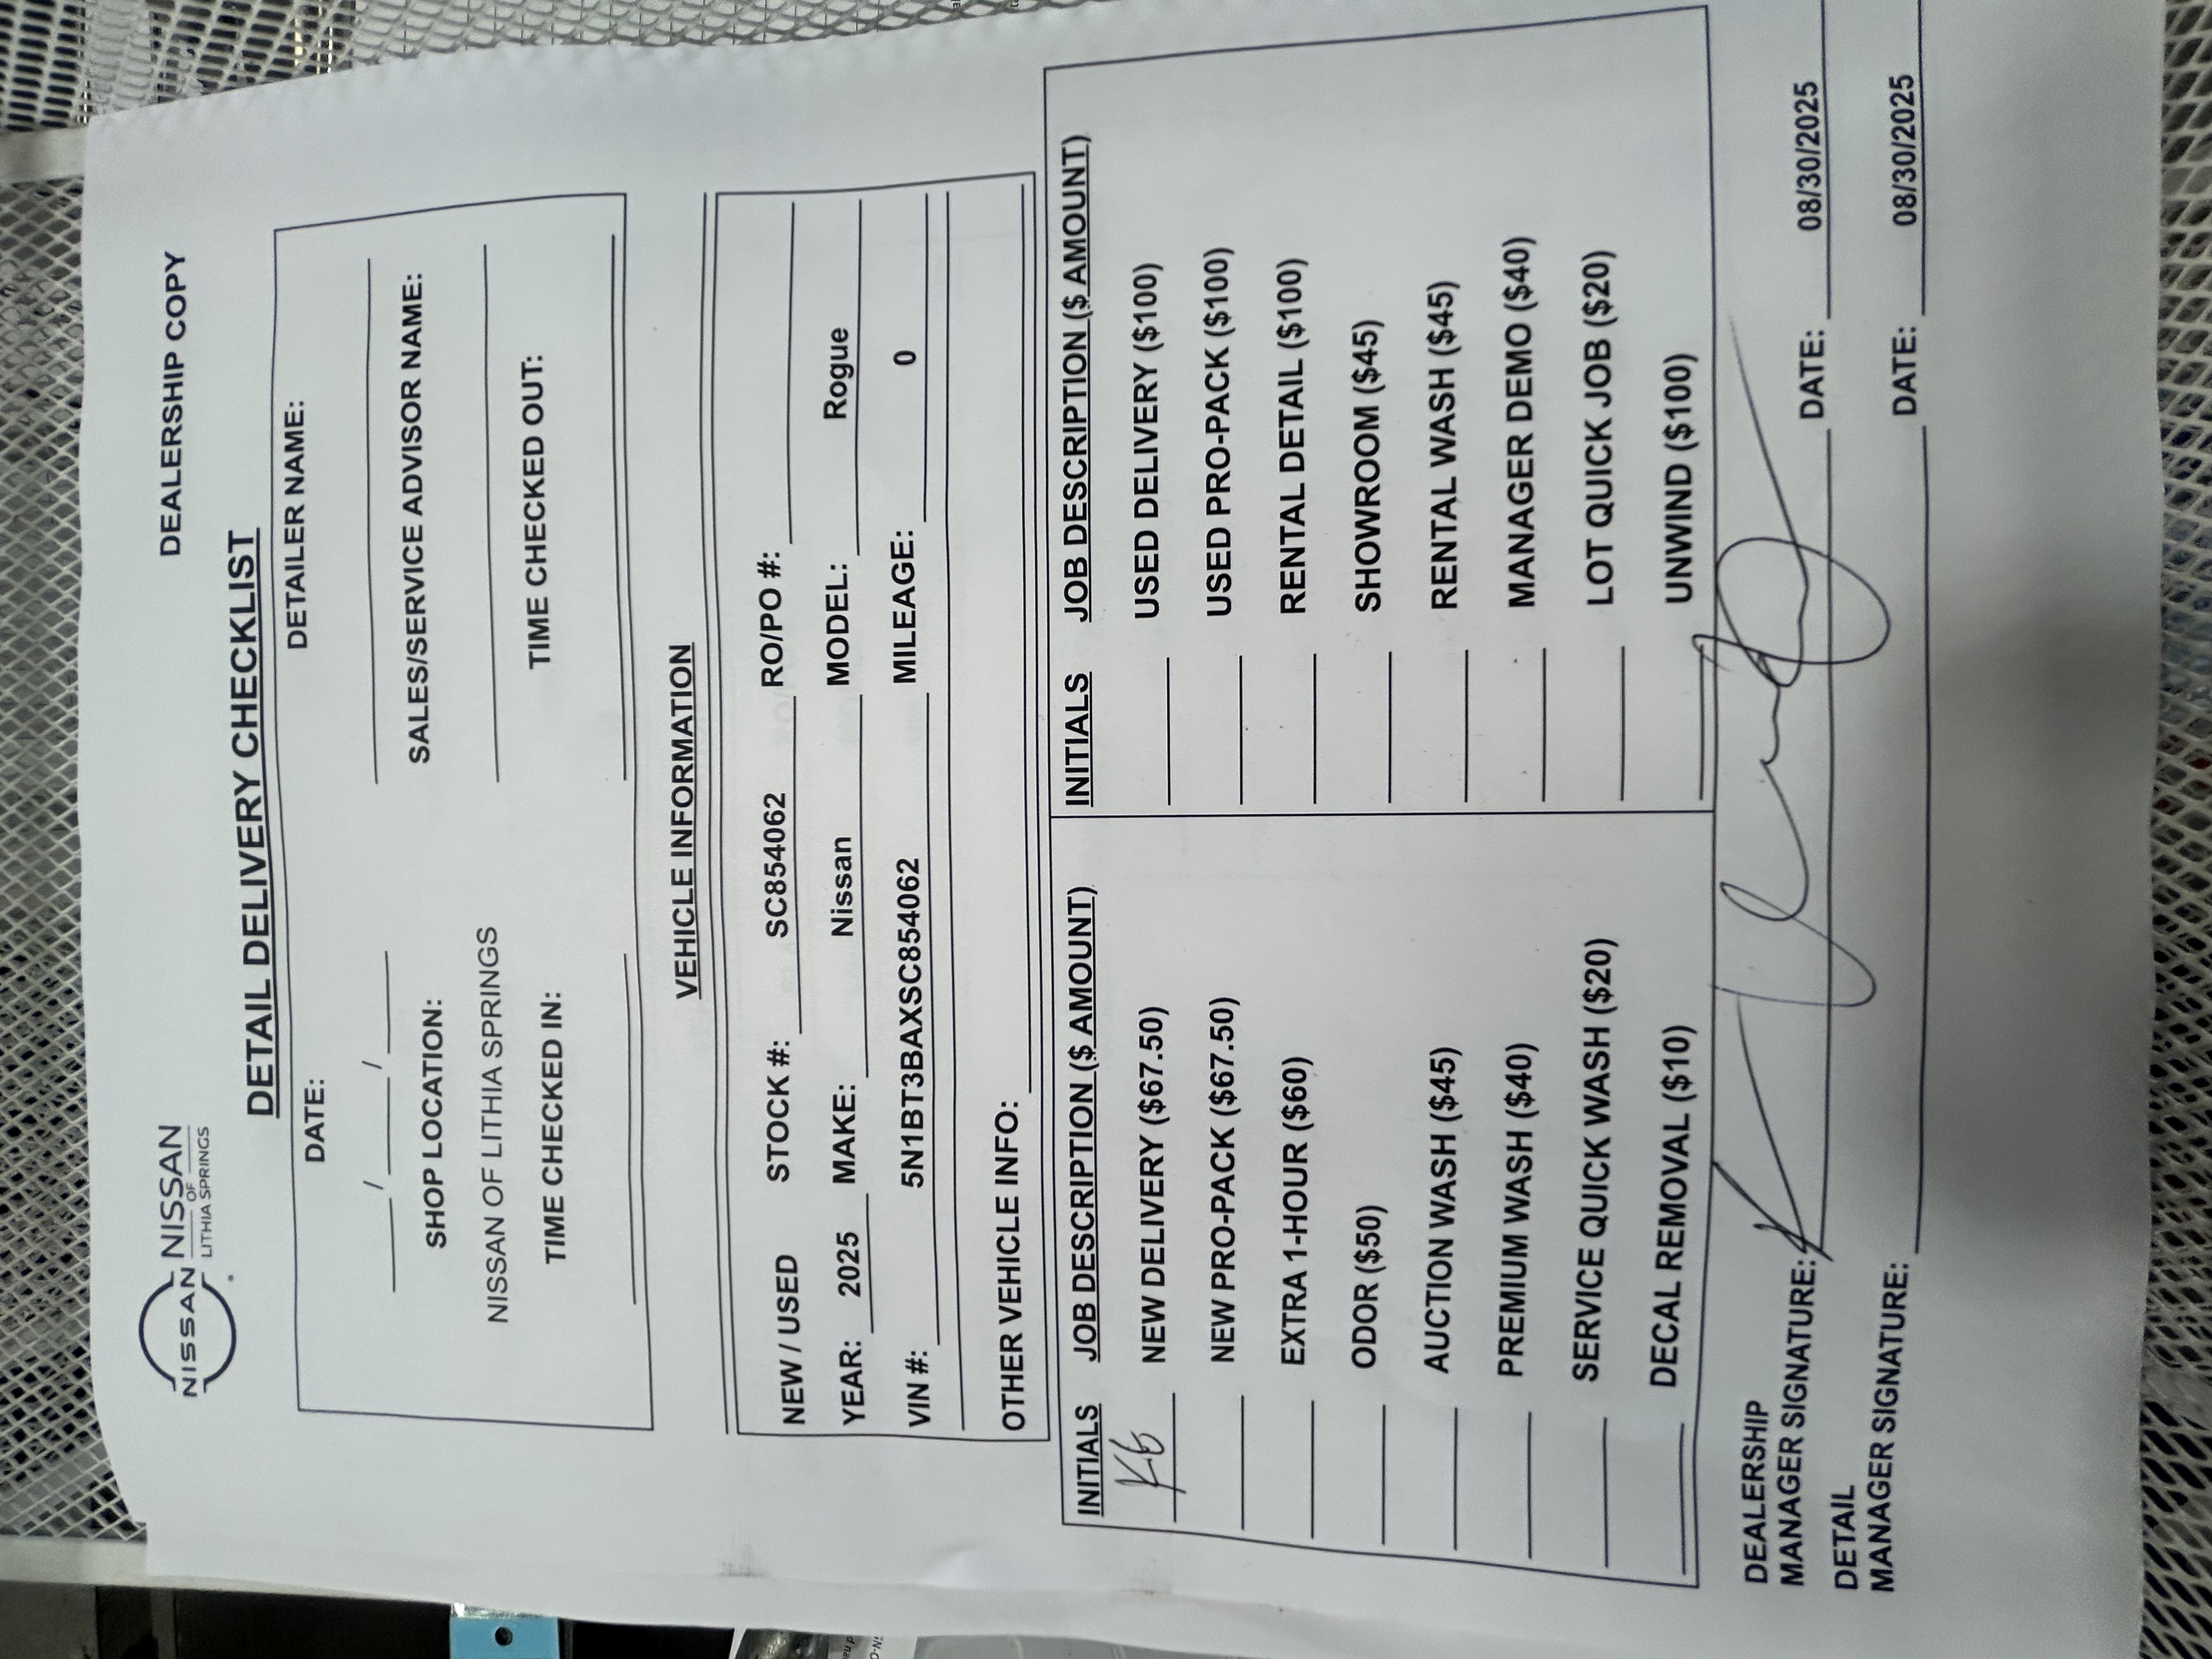 NISSAN NISSAN
OF
LITHIA SPRINGS
DEALERSHIP COPY
DETAIL DELIVERY CHECKLIST
DATE: DETAILER NAME:
____/____/____
SHOP LOCATION: SALES/SERVICE ADVISOR NAME:
NISSAN OF LITHIA SPRINGS
TIME CHECKED IN: TIME CHECKED OUT:
VEHICLE INFORMATION
NEW / USED STOCK #: SC854062 RO/PO #:
YEAR: 2025 MAKE: Nissan MODEL: Rogue
VIN #: 5N1BT3BAXSC854062 MILEAGE: 0
OTHER VEHICLE INFO:
INITIALS JOB DESCRIPTION ($ AMOUNT) INITIALS JOB DESCRIPTION ($ AMOUNT)
KG NEW DELIVERY ($67.50) USED DELIVERY ($100)
NEW PRO-PACK ($67.50) USED PRO-PACK ($100)
EXTRA 1-HOUR ($60) RENTAL DETAIL ($100)
ODOR ($50) SHOWROOM ($45)
AUCTION WASH ($45) RENTAL WASH ($45)
PREMIUM WASH ($40) MANAGER DEMO ($40)
SERVICE QUICK WASH ($20) LOT QUICK JOB ($20)
DECAL REMOVAL ($10) UNWIND ($100)
DEALERSHIP
MANAGER SIGNATURE: DATE: 08/30/2025
DETAIL
MANAGER SIGNATURE: DATE: 08/30/2025